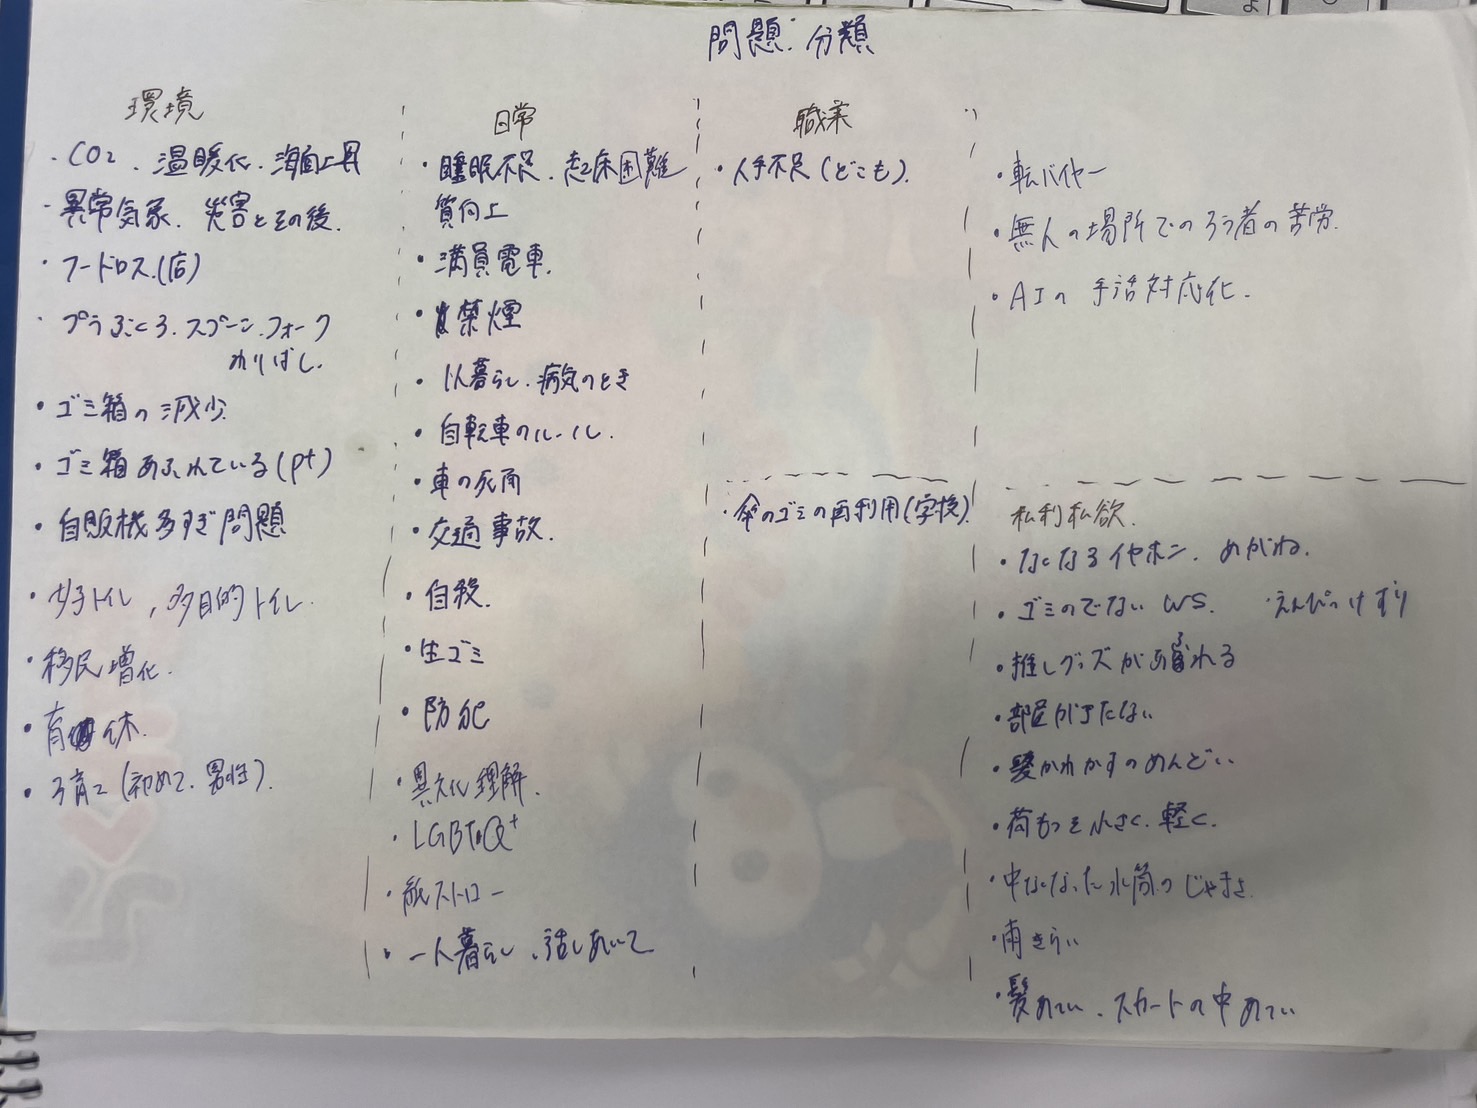 問題:分類
環境
・CO2、温暖化、海面上昇
・異常気象、災害とその後。
・フードロス(店)
・プラぶくろ、スプーン、フォーク
わりばし。
・ゴミ箱の減少
・ゴミ箱あふれている(pt)
・自販機多すぎ問題
・女子トイレ、多目的トイレ。
・移民増化。
・育休。
・子育て(初めて、男性)。
日常
・睡眠不足、起床困難
質向上
・満員電車。
・禁煙
・1人暮らし、病気のとき
・自転車のルール。
・車の死角
・交通事故。
・自殺。
・生ゴミ
・防犯
・異文化理解。
・LGBTQ+
・紙ストロー
・一人暮らし、話しあいて
職業
・人手不足(どこも)。
・傘のゴミの再利用(学校)
・転バイヤー
・無人の場所でのろう者の苦労。
・AIの手話対応化。
私利私欲。
・なくなるイヤホン、めがね。
・ゴミのでない WS. ・えんぴつけずり
・推しグッズがあふれる
・部屋がきたない
・髪かわかすのめんどい
・荷もつを小さく、軽く。
・中なくなった水筒のじゃまさ
・雨きらい
・髪あつい、スカートの中あつい